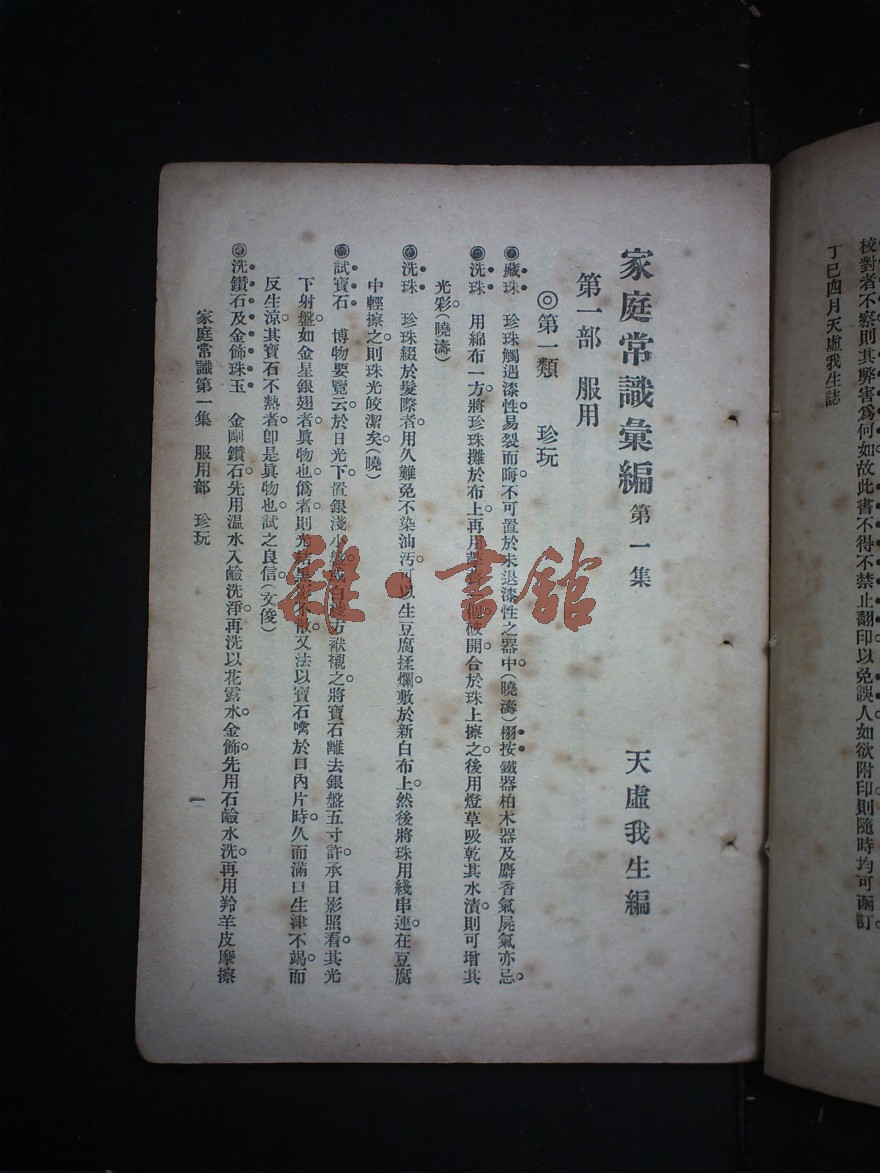 校對者不察則其弊害爲何如故此書不得不禁止翻印以免誤人如欲附印則隨時均可函訂。
丁巳四月天虛我生誌
家庭常識彙編 第一集 天虛我生編
第一部 服用
◎第一類 珍玩
◉藏珠 珍珠觸遇漆性易裂而晦不可置於未退漆性之器中。(曉濤)栩按鐵器柏木器及麝香氣屍氣亦忌。
◉洗珠 用綿布一方將珍珠攤於布上。再用 破開合於珠上擦之。後用燈草吸乾其水漬。則可增其
光彩。(曉濤)
◉洗珠 珍珠綴於髮際者。用久難免不染油汚。可以生豆腐揉爛。敷於新白布上。然後將珠用綫串連在豆腐
中輕擦之。則珠光皎潔矣。(曉)
◉試寶石 博物要覽云。於日光下。置銀淺小盤。或白綾方袱襯之。將寶石離去銀盤五寸許。承日影照看。其光
下射盤如金星銀翅者。眞物也。僞者則光 不散。又法以寶石噙於口內片時。久而滿口生津不竭。而
反生涼。其寶石不熱者。卽是眞物也。試之良信。(文俊)
◉洗鑽石及金飾珠玉 金剛鑽石先用溫水入鹼洗淨。再洗以花露水。金飾先用石鹼水洗。再用羚羊皮摩擦
家庭常識第一集 服用部 珍玩 一
雜·書館